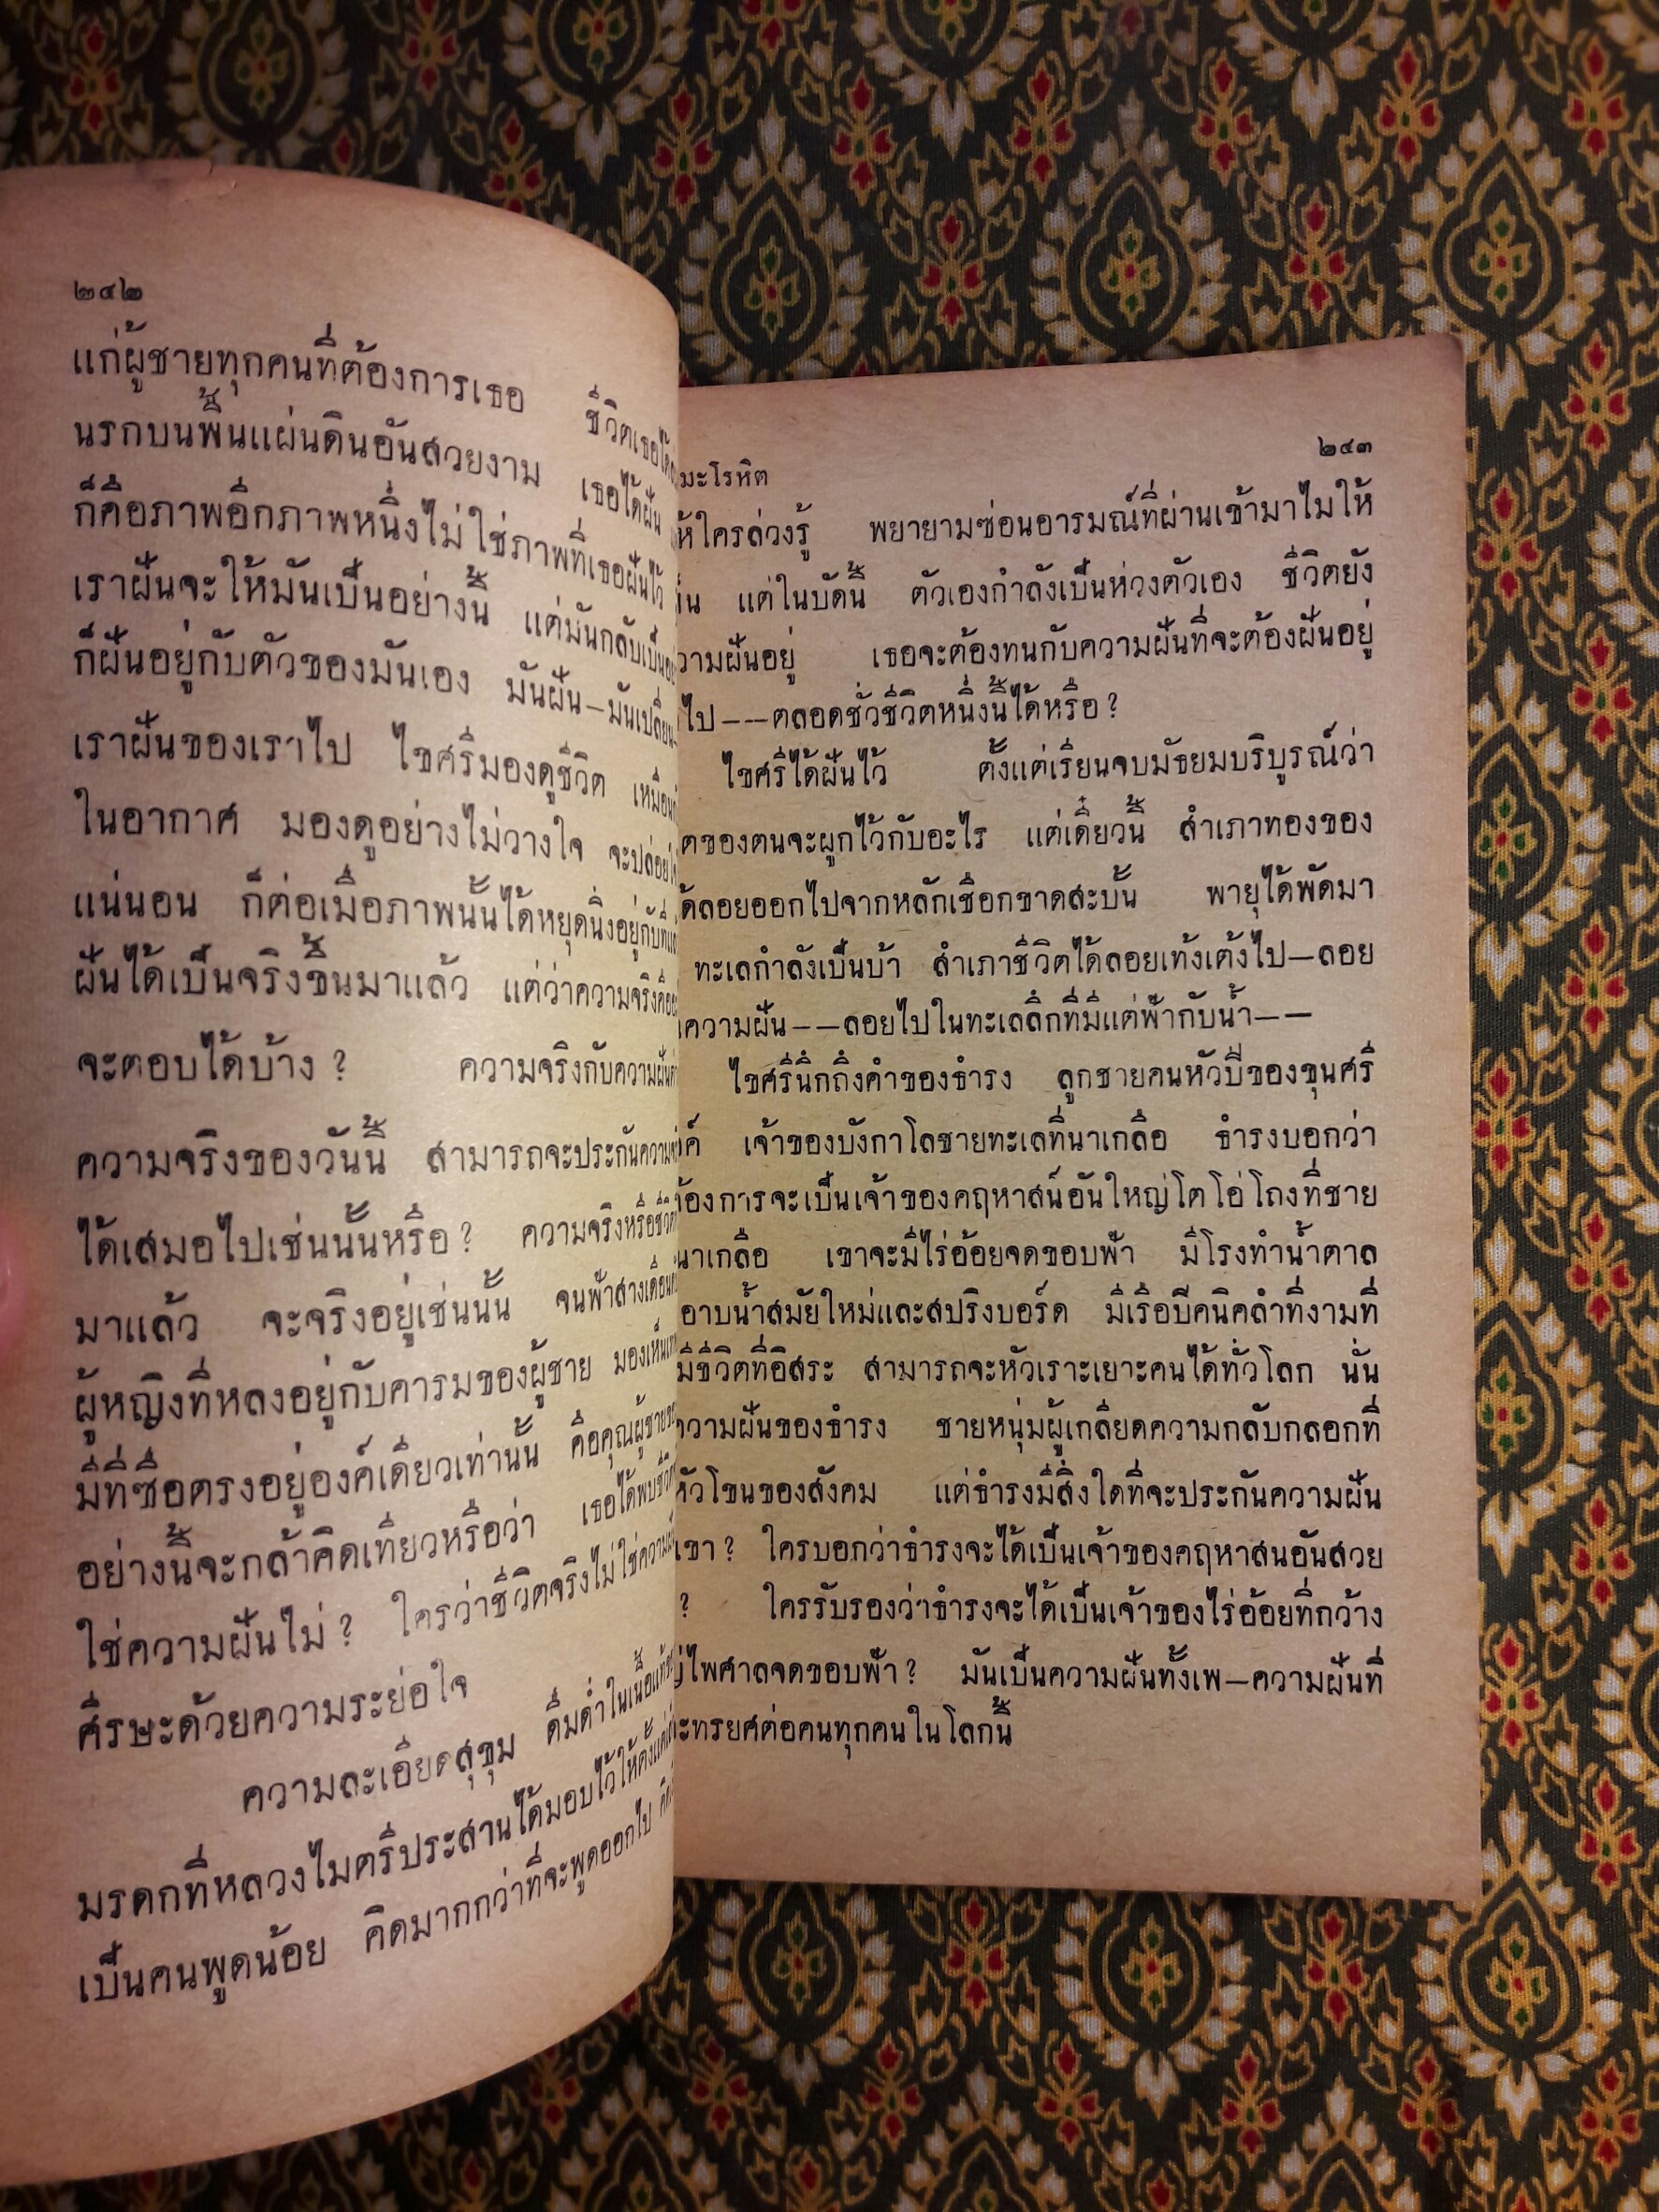 ๒๔๒
แก่ผู้ชายทุกคนที่ต้องการเธอ ชีวิตเธอได้
นรกบนพื้นแผ่นดินอันสวยงาม เธอได้ฝัน
ก็คืออภาพอีกภาพหนึ่งไม่ใช่ภาพที่เธอฝันไว้
เราฝันจะให้มันเป็นอย่างนี้ แต่มันกลับเป็น
ก็ฝันอยู่กับตัวของมันเอง มันฝัน—มันเปลี่ยน
เราฝันของเราไป ไขศรีมองดูชีวิต เหมือน
ในอากาศ มองดูอย่างไม่วางใจ จะปล่อย
แน่นอน ก็ต่อเมื่อภาพนั้นได้หยุดนิ่งอยู่กับที่
ฝันได้เป็นจริงขึ้นมาแล้ว แต่ว่าความจริงคือ
จะตอบได้บ้าง? ความจริงกับความฝัน
ความจริงของวันนี้ สามารถจะประกันความ
ได้เสมอไปเช่นนั้นหรือ? ความจริงหรือชีวิต
มาแล้ว จะจริงอยู่เช่นนั้น จนฟ้าสางเดือน
ผู้หญิงที่หลงอยู่กับคารมของผู้ชาย มองเห็น
มีที่ซื่อตรงอยู่องค์เดียวเท่านั้น คือคุณผู้ชาย
อย่างนี้จะกล้าคิดเทียวหรือว่า เธอได้พบชีวิต
ใช่ความฝันไม่? ใครว่าชีวิตจริงไม่ใช่ความ
ศีรษะด้วยความระย่อใจ
ความละเอียดสุขุม ดื่มด่ำในเนื้อแท้
มรดกที่หลวงไมตรีประสานได้มอบไว้ให้ตั้งแต่
เป็นคนพูดน้อย คิดมากกว่าที่จะพูดออกไป
มะโรหิต
๒๔๓
ห้ใครล่วงรู้ พยายามซ่อนอารมณ์ที่ผ่านเข้ามาไม่ให้
็น แต่ในบัดนี้ ตัวเองกำลังเป็นห่วงตัวเอง ชีวิตยัง
วามฝันอยู่ เธอจะต้องทนกับความฝันที่จะต้องฝันอยู่
ไป——ตลอดชั่วชีวิตหนึ่งนี้ได้หรือ?
ไขศรีได้ฝันไว้ ตั้งแต่เรียนจบมัธยมบริบูรณ์ว่า
ตของตนจะผูกไว้กับอะไร แต่เดี๋ยวนี้ สำเภาทองของ
ด้ลอยออกไปจากหลักเชือกขาดสะบั้น พายุได้พัดมา
ทะเลกำลังเป็นบ้า สำเภาชีวิตได้ลอยเท้งเต้งไป—ลอย
ความฝัน——ลอยไปในทะเลลึกที่มีแต่ฟ้ากับน้ำ——
ไขศรีนึกถึงคำของธำรง ลูกชายคนหัวปีของขุนศรี
ค์ เจ้าของบังกาโลชายทะเลที่นาเกลือ ธำรงบอกว่า
้องการจะเป็นเจ้าของคฤหาสน์อันใหญ่โตโอ่โถงที่ชาย
นาเกลือ เขาจะมีไร่อ้อยจดขอบฟ้า มีโรงทำน้ำตาล
อาบน้ำสมัยใหม่และสปริงบอร์ด มีเรือปิคนิคลำที่งามที่
มีชีวิตที่อิสระ สามารถจะหัวเราะเยาะคนได้ทั่วโลก นั่น
ความฝันของธำรง ชายหนุ่มผู้เกลียดความกลับกลอกที่
หัวโขนของสังคม แต่ธำรงมีสิ่งใดที่จะประกันความฝัน
เขา? ใครบอกว่าธำรงจะได้เป็นเจ้าของคฤหาสนอันสวย
? ใครรับรองว่าธำรงจะได้เป็นเจ้าของไร่อ้อยที่กว้าง
ไพศาลจดขอบฟ้า? มันเป็นความฝันทั้งเพ—ความฝันที่
ะทรยศต่อคนทุกคนในโลกนี้